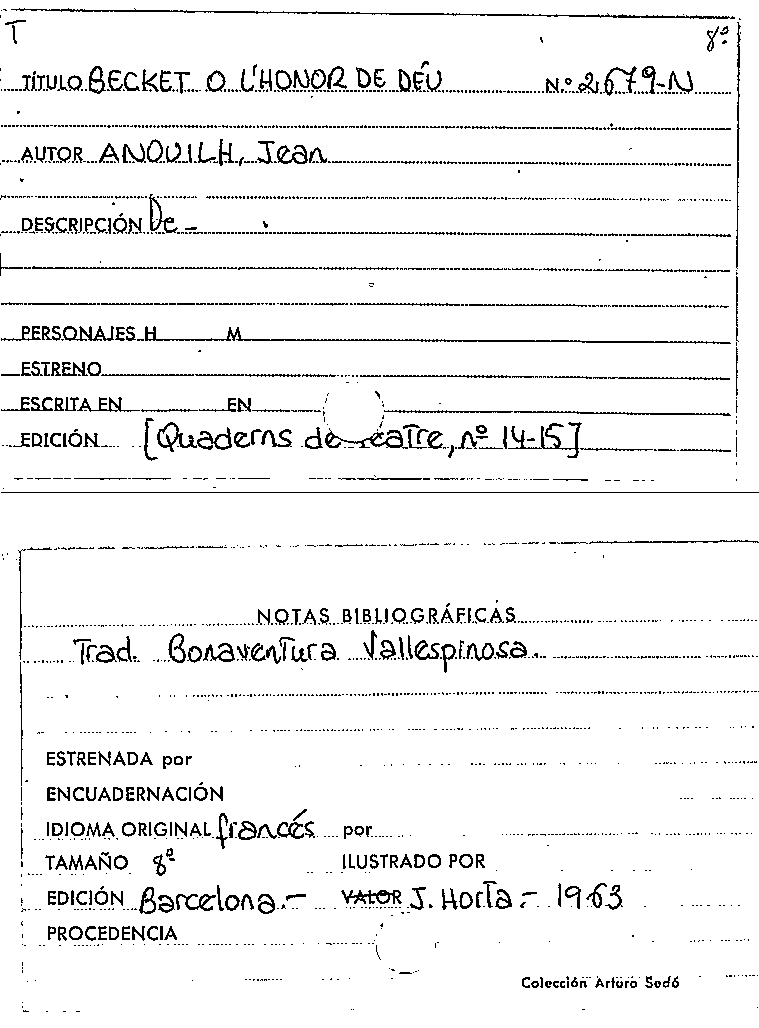 T 8ª
TÍTULO BECKET O L'HONOR DE DÉU N.º 2.679-N
AUTOR ANOUILH, Jean
DESCRIPCIÓN De -
PERSONAJES H M
ESTRENO
ESCRITA EN EN
EDICIÓN [Quaderns de teatre, nº 14-15]
NOTAS BIBLIOGRÁFICAS
Trad. Bonaventura Vallespinosa.
ESTRENADA por
ENCUADERNACIÓN
IDIOMA ORIGINAL francés por
TAMAÑO 8ª ILUSTRADO POR
EDICIÓN Barcelona.- VALOR J. Horta.- 1963
PROCEDENCIA
Colección Arturo Sedó